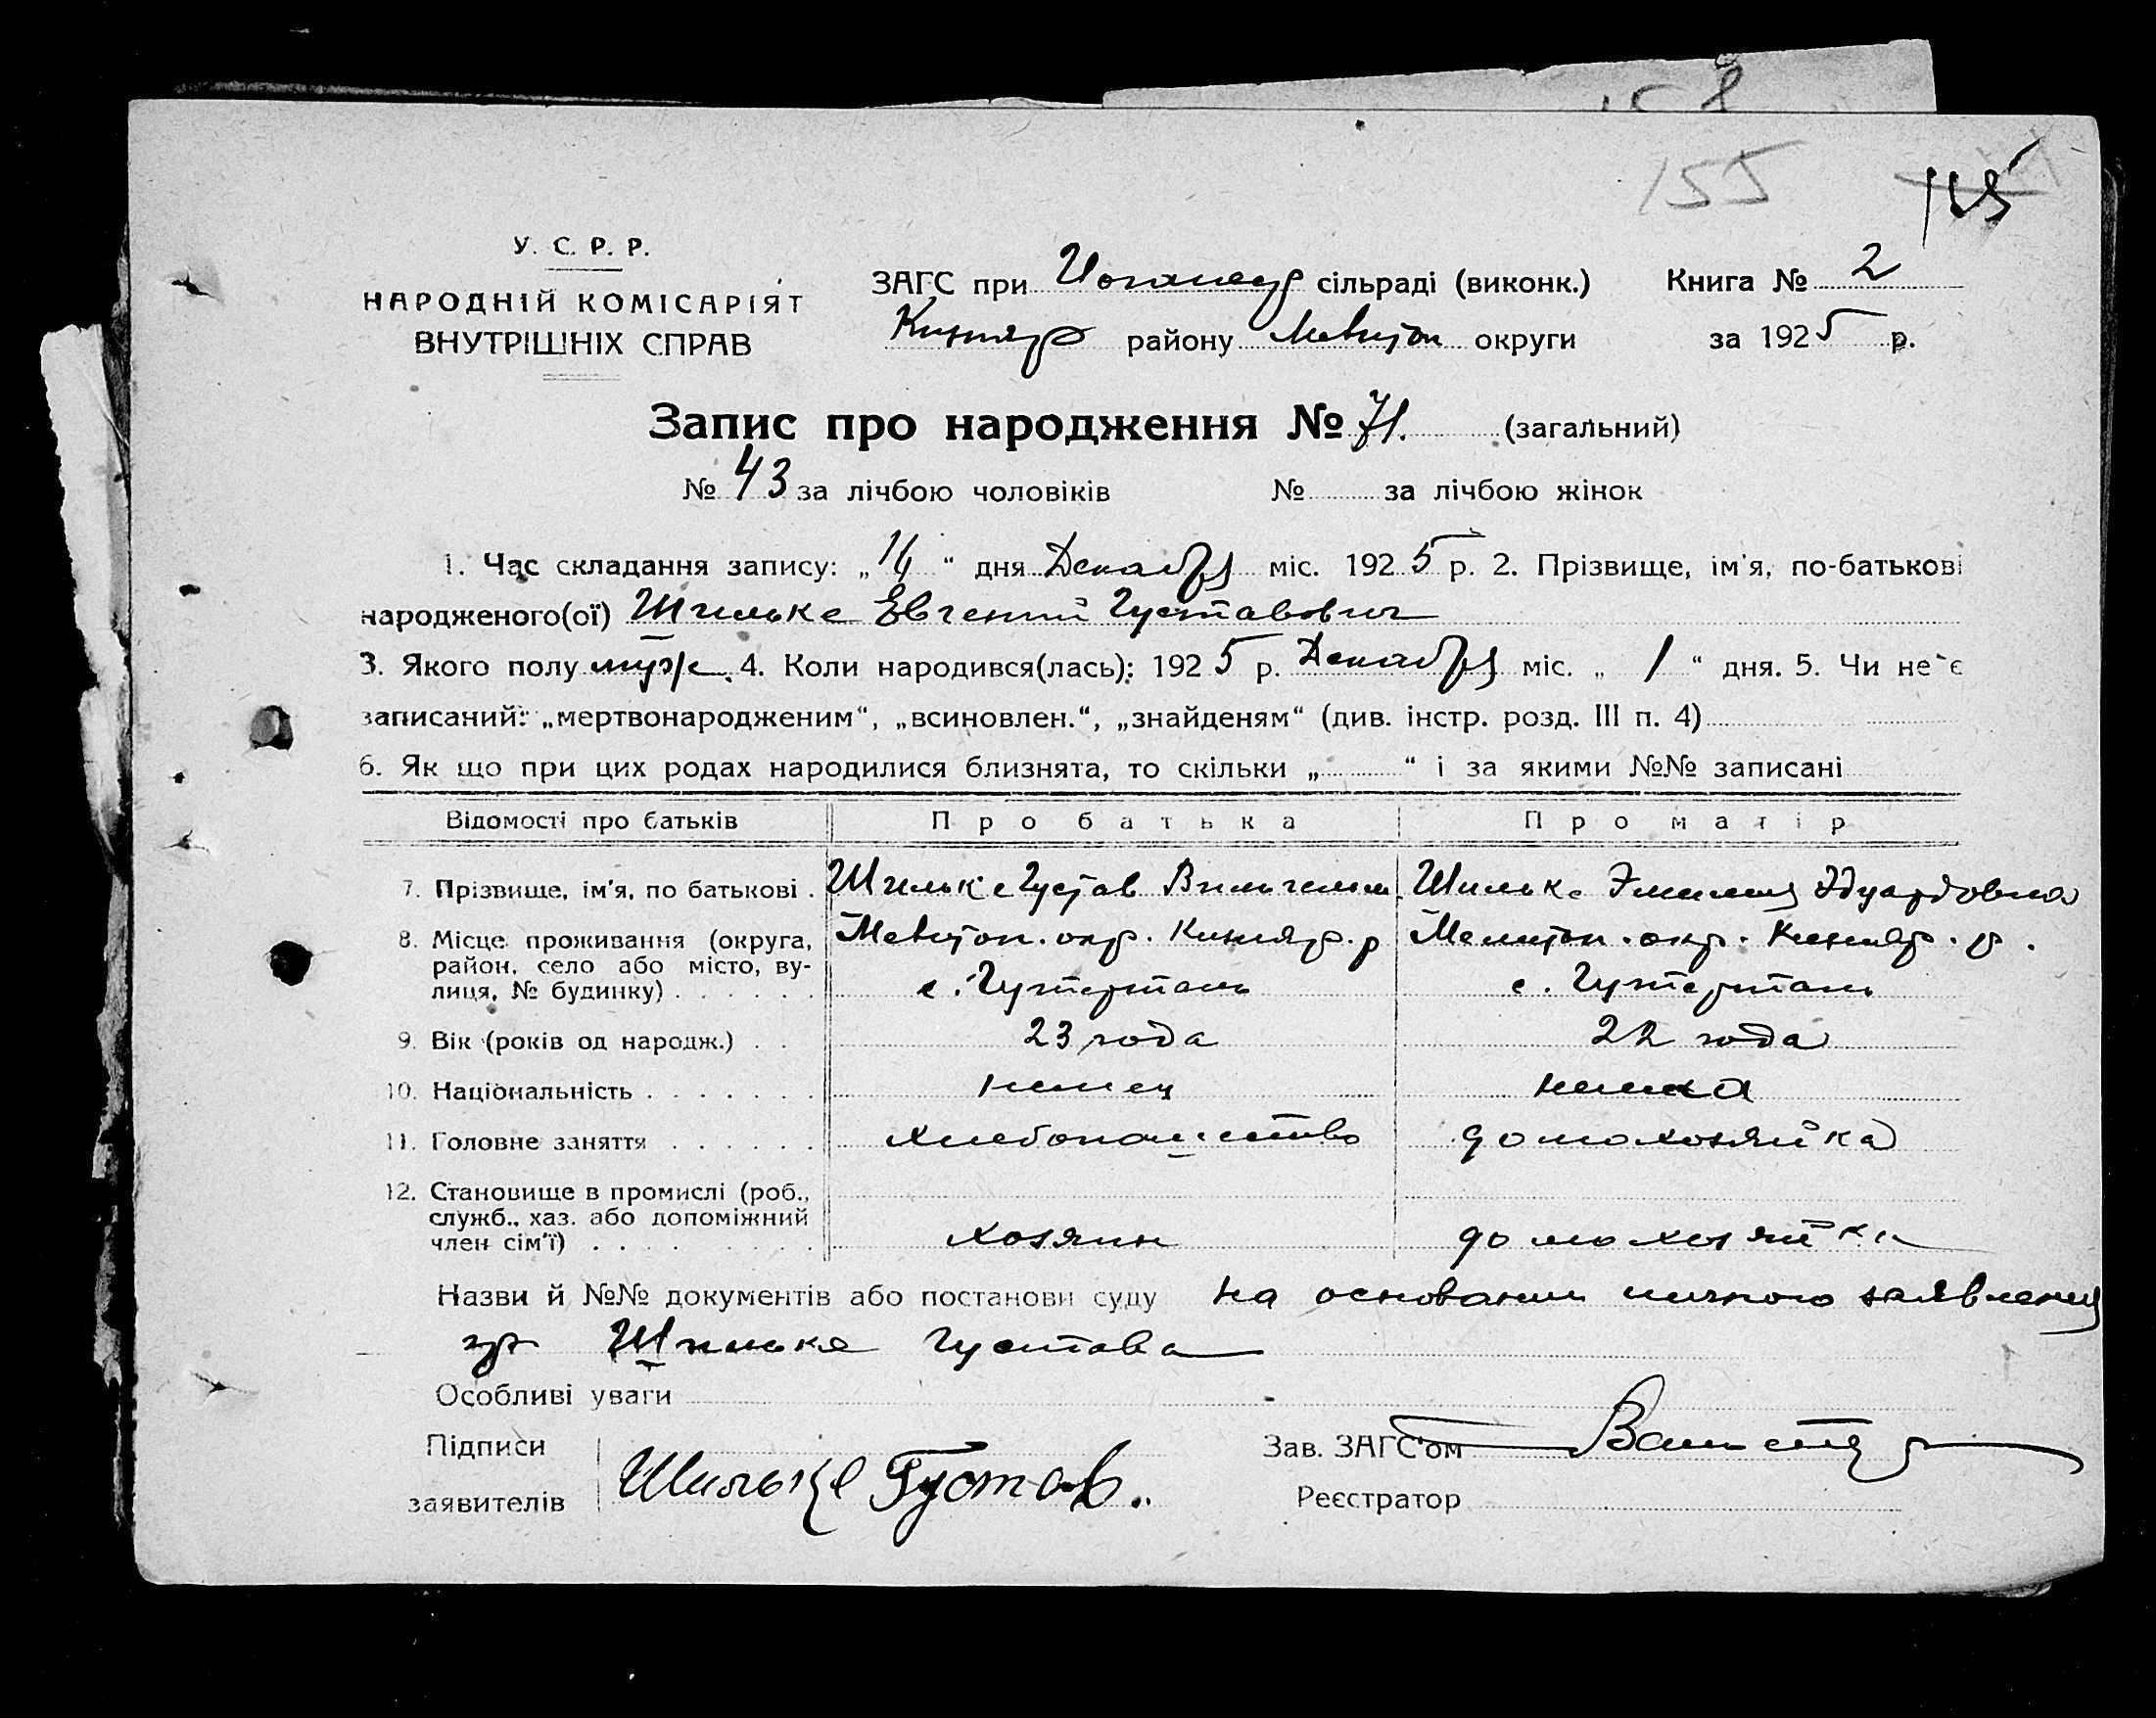 155
У. С. Р. Р.
НАРОДНІЙ КОМІСАРІЯТ
ВНУТРІШНІХ СПРАВ
ЗАГС при сільраді (виконк.) Книга № 2
району округи за 1925 р.
Запис про народження № 71. (загальний)
№ 43 за лічбою чоловіків № за лічбою жінок
1. Час складання запису: „ “ дня Декабря міс. 1925 р. 2. Прізвище, ім'я, по-батькові
народженого(ої) Шильке Евгений Густавович
3. Якого полу муж. 4. Коли народився(лась): 1925 р. Декабря міс. „ 1 “ дня. 5. Чи не є
записаний: „мертвонародженим“, „всиновлен.“, „знайденям“ (див. інстр. розд. III п. 4)
6. Як що при цих родах народилися близнята, то скільки „ “ і за якими №№ записані
Відомості про батьків Про батька Про матір
7. Прізвище, ім'я, по батькові . Шильке Густав Вильгельм. Шильке Эмилия Эдуардовна
8. Місце проживання (округа, Мелитоп. окр. Кизияр. р Мелитоп. окр. Кизияр. р.
район, село або місто, ву-
лиця, № будинку) . . . . . . с. Гутерталь с. Гутерталь
9. Вік (років од народж.) . . 23 года 22 года
10. Національність . . . . . . . немец немка
11. Головне заняття . . . . . . хлебопашество домохозяйка
12. Становище в промислі (роб.,
служб., хаз. або допоміжний
член сім'ї) . . . . хозяин домохозяйка
Назви й №№ документів або постанови суду на основании личного заявления
гр Шильке Густава
Особливі уваги
Підписи
заявителів Шильке Густав..
Зав. ЗАГС'ом
Реєстратор